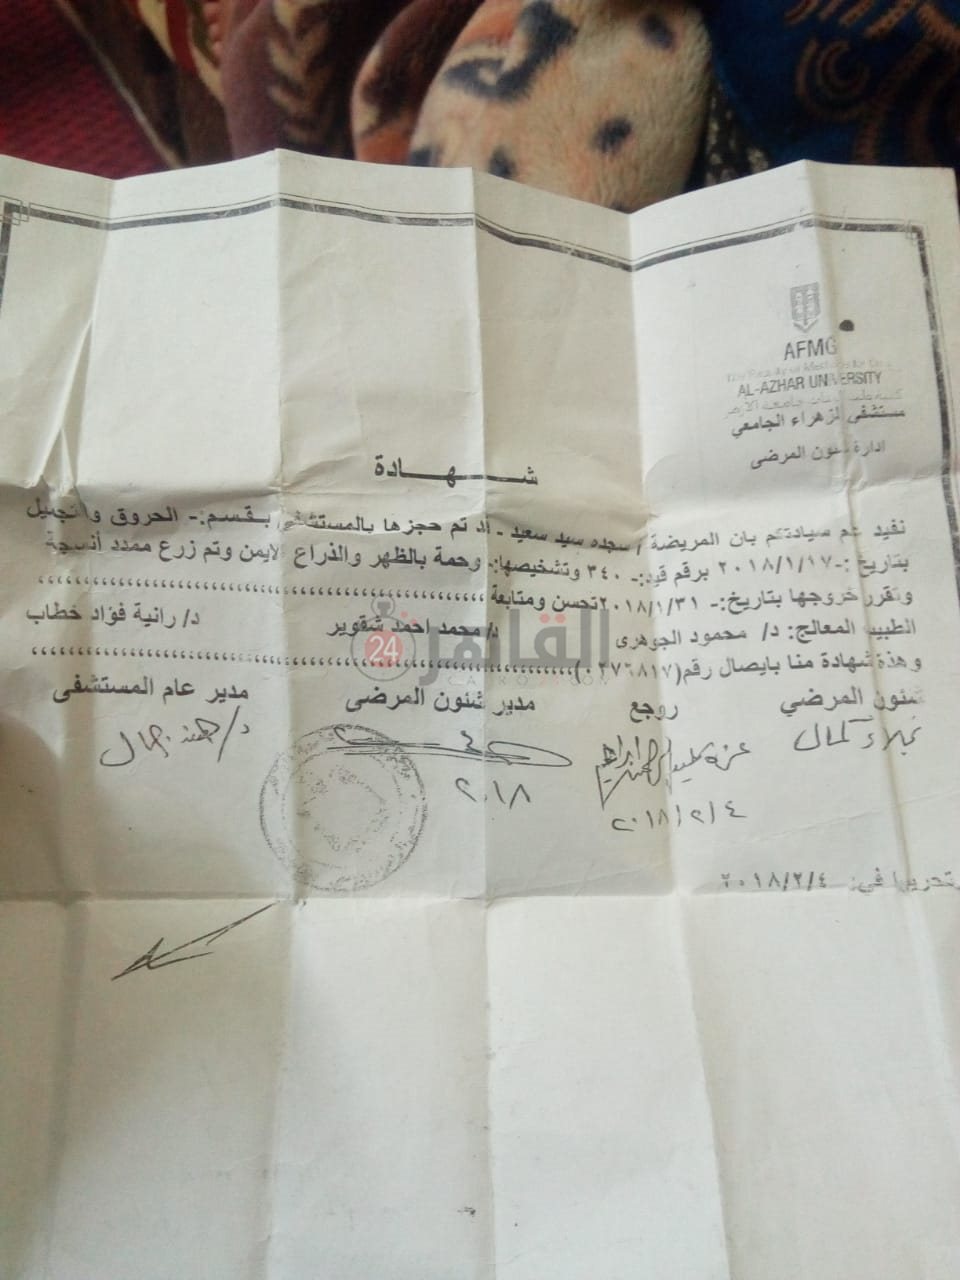 AFMG
AL-AZHAR UNIVERSITY
كلية طب بنات جامعة الأزهر
مستشفى الزهراء الجامعي
ادارة شئون المرضى
شـــهـــادة
نفيد علم سيادتكم بان المريضة / سجده سيد سعيد - قد تم حجزها بالمستشفى بقسم:- الحروق والتجميل
بتاريخ :-٢٠١٨/١/١٧ برقم قيد:- ٣٤٠ وتشخيصها:- وحمة بالظهر والذراع الايمن وتم زرع ممدد أنسجة
وتقرر خروجها بتاريخ:- ٢٠١٨/١/٣١ تحسن ومتابعة
الطبيب المعالج: د/ محمود الجوهرى د/ محمد احمد شقوير د/ رانية فؤاد خطاب
وهذة شهادة منا بايصال رقم(٠٢٧٦٨١٧)
شئون المرضي روجع مدير شئون المرضى مدير عام المستشفى
نجلاء كمال
٢٠١٨
٢٠١٨/٢/٤
تحريرا في: ٢٠١٨/٢/٤
القاهرة 24